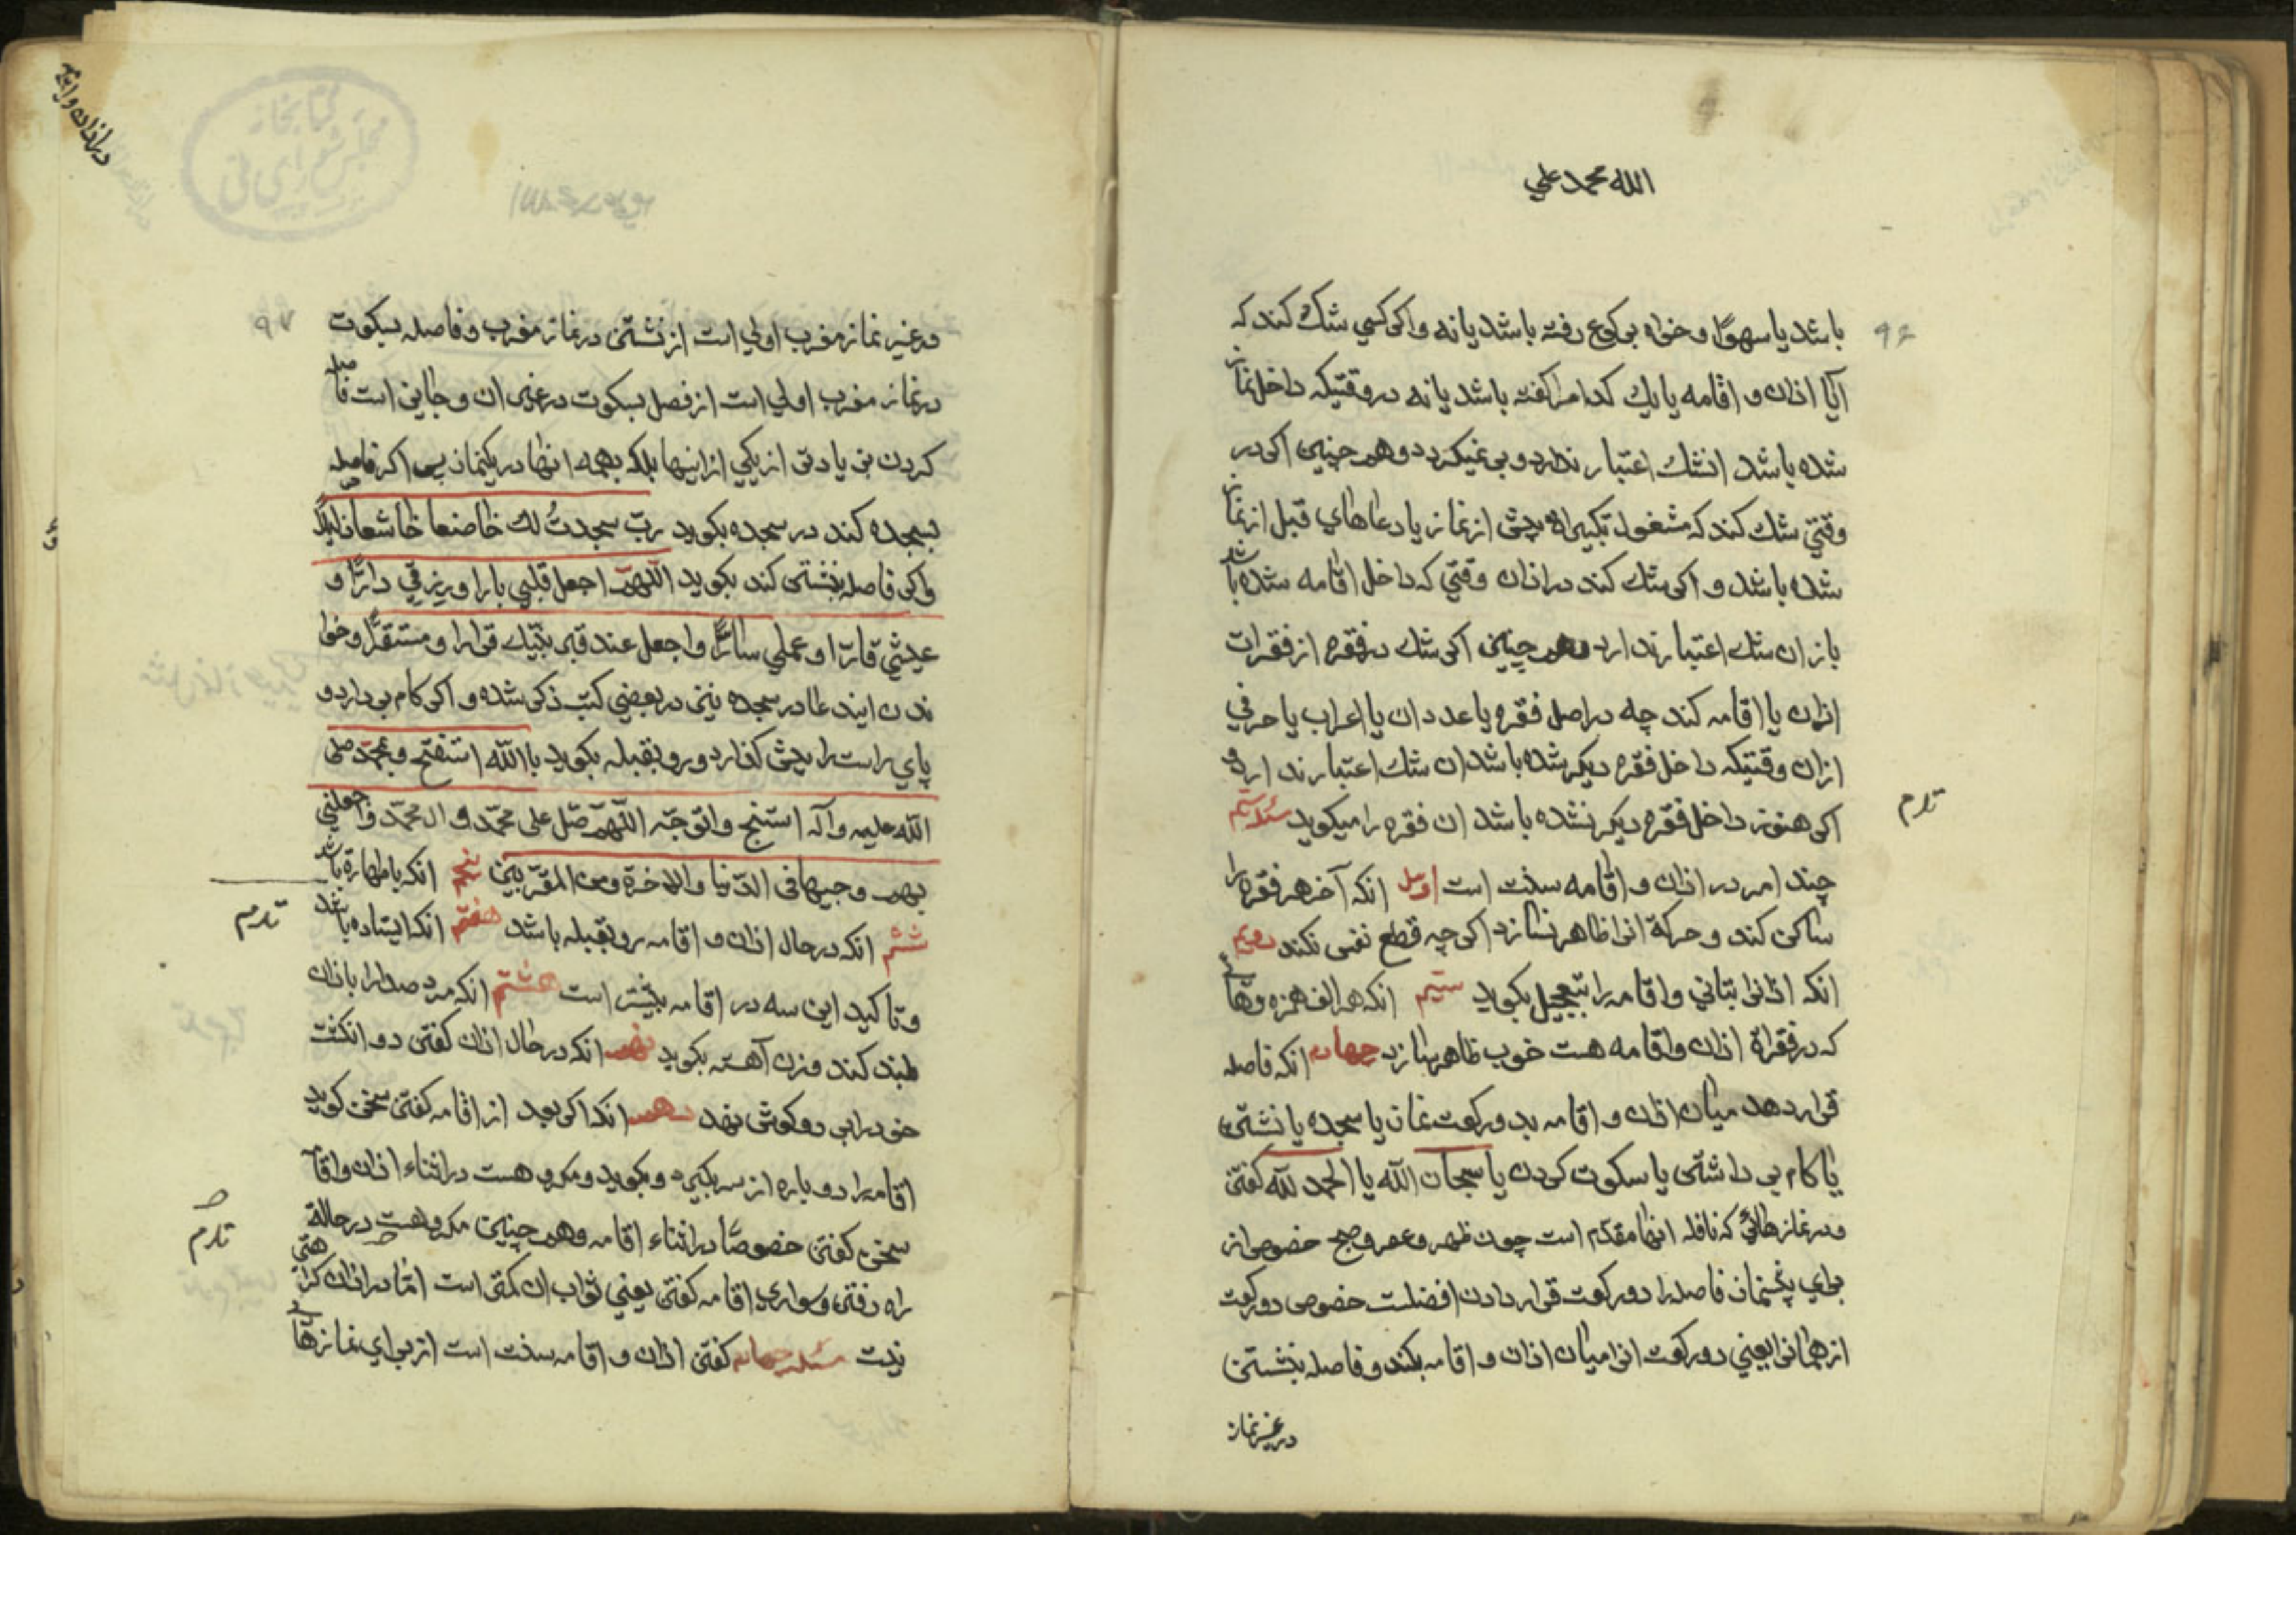 الله محمد علي
۹۶
باشد یا سهوًا و خواه برکوع رفته باشد یا نه و اکر کسي شك کند که
آیا اذان و اقامه یا یك کدام را کفته باشد یا نه در وقتیکه داخل نماز
شده باشد انشك اعتبار ندارد و بر نمیکردد و هم چنین اکر در
وقتي شك کند که مشغول تکبیرات پیش از نماز یا دعاهای قبل از نماز
شده باشد و اکر شك کند در اذان وقتي که داخل اقامه شده باشد
باز ان شك اعتبار ندارد و هم چنین اکر شك در فقره از فقرات
اذان یا اقامه کند چه در اصل فقره یا عدد ان یا اعراب یا حرفي
از ان وقتیکه داخل فقره دیکر شده باشد ان شك اعتبار ندارد و
اکر هنوز داخل فقره دیکر نشده باشد ان فقره را میکوید مسئله سیم
چند امر در اذان و اقامه سنت است اول انکه آخر هر فقره را
ساکن کند و حرکة انرا ظاهر نسازد اکر چه قطع نفس نکند دویم
انکه اذانرا بتاني و اقامه را بتعجیل بکوید سیم انکه هر الف همزه و هائی
که در فقراة اذان و اقامه هست خوب ظاهر سازد چهارم انکه فاصله
قرار دهد میان اذان و اقامه بدو رکعت نماز یا سجده یا نشتن
یا کام بر داشتن یا سکوت کردن یا سبحان الله یا الحمد لله کفتن
و در نمازهائي که نافله انها مقدم است چون ظهر و عصر و صبح خصوص از
برای پنجنماز فاصله را دو رکعت قرار دادن افضلست خصوص دو رکعت
از همانرا یعني دو رکعت انرا میان اذان و اقامه بکند و فاصله بنشستن
در غیر نماز
۹۷
در غیر نماز مغرب اولي است از نشتن در نماز مغرب و فاصله بسکوت
در نماز مغرب اولي است از فصل بسکوت در غیر ان و جایز است فاصله
کردن بزیادتر از یکي از اینها بلکه بهمه انها در یکنماز پس اکر فاصله
بسجده کند در سجده بکوید رب سجدتُ لك خاضعا خاشعا ذلیلًا
و اکر فاصله بنشستن کند بکوید اللّهم اجعل قلبي بارا و رزقي دارًّا و
عیشي قارّا و عملي سارًّا و اجعل عند قبر نبیّك قرارا و مستقرًّا و خوا
ندن ایندعا در سجده نیز در بعضي کتب ذکر شده و اکر کام بر دارد و
پاي راست را پیش کذارد و رو بقبله بکوید باالله استفتح و بمحمّد صلی
الله علیه و آله استنجح و اتوجّه اللّهمّ صلّ علی محمّد و ال محمّد و اجعلني
بهم وجیها في الدّنیا و الاخرة و من المقرّبین پنجم انکه با طهارة باشد
ششم انکه در حال اذان و اقامه رو بقبله باشد هفتم انکه ایستاده باشد
و تاکید این سه در اقامه بیشتر است هشتم انکه مرد صدا را باذان
بلند کند و زن آهسته بکوید نهم انکه در حال اذان کفتن دو انکشت
خود را بر دو کوش نهد دهم انکه اکر بعد از اقامه کفتن سخن کوید
اقامه را دوباره از سر بکیرد و بکوید و مکروهست در اثناء اذان و اقامه
سخن کفتن خصوصًا در اثناء اقامه و هم چنین مکروهست در حالة
راه رفتن و سواری اقامه کفتن یعني ثواب ان کمتر است امّا در اذان کراهتی
نیست مسئله چهارم کفتن اذان و اقامه سنت است از برای نمازهای